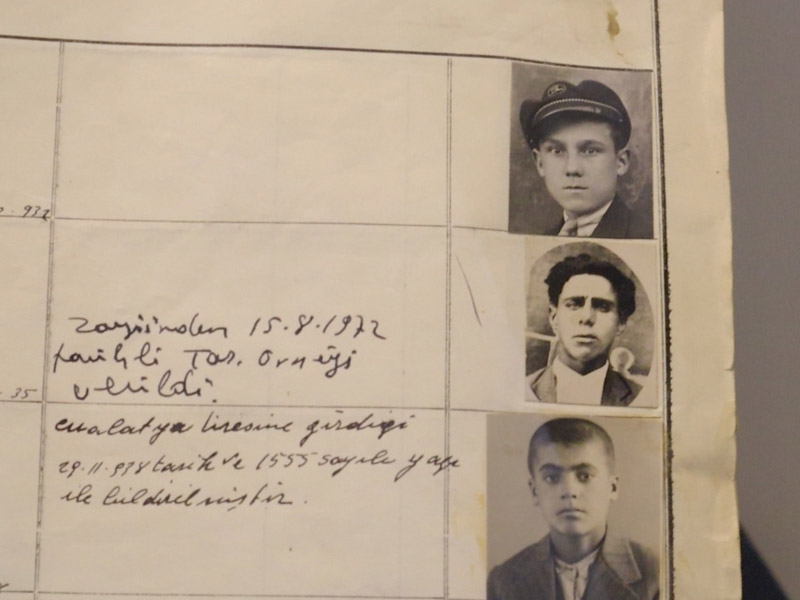 937
zayiinden 15.8.1972
tarihli Tas. Örneği
verildi.
35
Malatya lisesine girdiği
29.11.938 tarih ve 1555 sayılı yazı
ile bildirilmiştir.